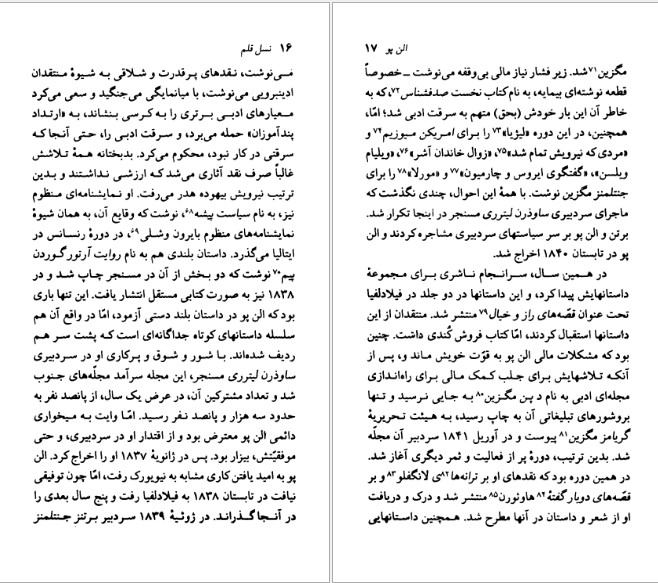 ۱۶ نسل قلم
می‌نوشت، نقدهای پرقدرت و شلاقی به شیوهٔ منتقدان
ادینبرویی می‌نوشت، با میانمایگی می‌جنگید و سعی می‌کرد
معیارهای ادبی برتری را به کرسی بنشاند، به «ارتداد
پندآموزان» حمله می‌برد، و سرقت ادبی را، حتی آنجا که
سرقتی در کار نبود، محکوم می‌کرد. بدبختانه همهٔ تلاشش
غالباً صرف نقد آثاری می‌شد که ارزشی نداشتند و بدین
ترتیب نیرویش بیهوده هدر می‌رفت. او نمایشنامه‌ای منظوم
نیز، به نام سیاست پیشه۶۸، نوشت که وقایع آن، به همان شیوهٔ
نمایشنامه‌های منظوم بایرون وشلی۶۹، در دورهٔ رنسانس در
ایتالیا می‌گذرد. داستان بلندی هم به نام روایت آرتور گوردن
پیم۷۰ نوشت که دو بخش از آن در مسنجر چاپ شد و در
۱۸۳۸ نیز به صورت کتابی مستقل انتشار یافت. این تنها باری
بود که الن پو در داستان بلند دستی آزمود، امّا در واقع آن هم
سلسله داستانهای کوتاه جداگانه‌ای است که پشت سر هم
ردیف شده‌اند. با شور و شوق و پرکاری او در سردبیری
ساوذرن لیترری مسنجر، این مجله سرآمد مجلّه‌های جنوب
شد و تعداد مشترکین آن، در عرض یک سال، از پانصد نفر به
حدود سه هزار و پانصد نفر رسید. امّا وایت به میخواری
دائمی الن پو معترض بود و از اقتدار او در سردبیری، و حتی
موفقیّتش، بیزار بود. پس در ژانویهٔ ۱۸۳۷ او را اخراج کرد. الن
پو به امید یافتن کاری مشابه به نیویورک رفت، امّا چون توفیقی
نیافت در تابستان ۱۸۳۸ به فیلادلفیا رفت و پنج سال بعدی را
در آنجا گذراند. در ژوئیهٔ ۱۸۳۹ سردبیر برتنز جنتلمنز
الن پو ۱۷
مگزین۷۱ شد. زیر فشار نیاز مالی بی‌وقفه می‌نوشت ــ خصوصاً
قطعه نوشته‌ای بیمایه، به نام کتاب نخست صدفشناس۷۲، که به
خاطر آن این بار خودش (بحق) متهم به سرقت ادبی شد؛ امّا،
همچنین، در این دوره «لیژیا»۷۳ را برای امریکن میوزیم۷۴ و
«مردی که نیرویش تمام شد»۷۵، «زوال خاندان آشر»۷۶، «ویلیام
ویلسن»، «گفتگوی ایروس و چارمیون»۷۷ و «مورلا»۷۸ را برای
جنتلمنز مگزین نوشت. با همهٔ این احوال، چندی نگذشت که
ماجرای سردبیری ساوذرن لیترری مسنجر در اینجا تکرار شد.
برتن و الن پو بر سر سیاستهای سردبیری مشاجره کردند و الن
پو در تابستان ۱۸۴۰ اخراج شد.
در همین سال، سرانجام ناشری برای مجموعهٔ
داستانهایش پیدا کرد، و این داستانها در دو جلد در فیلادلفیا
تحت عنوان قصّه‌های راز و خیال۷۹ منتشر شد. منتقدان از این
داستانها استقبال کردند، امّا کتاب فروش کُندی داشت. چنین
بود که مشکلات مالی الن پو به قوّت خویش ماند و، پس از
آنکه تلاشهایش برای جلب کمک مالی برای راه‌اندازی
مجله‌ای ادبی به نام د پن مگزین۸۰ به جایی نرسید و تنها
بروشورهای تبلیغاتی آن به چاپ رسید، به هیئت تحریریهٔ
گریامز مگزین۸۱ پیوست و در آوریل ۱۸۴۱ سردبیر آن مجلّه
شد. بدین ترتیب، دورهٔ پر از فعالیت و ثمر دیگری آغاز شد.
در همین دوره بود که نقدهای او بر ترانه‌ها۸۲ی لانگفلو۸۳ و بر
قصّه‌های دوبار گفتهٔ۸۴ هاوثورن۸۵ منتشر شد و درک و دریافت
او از شعر و داستان در آنها مطرح شد. همچنین داستانهایی